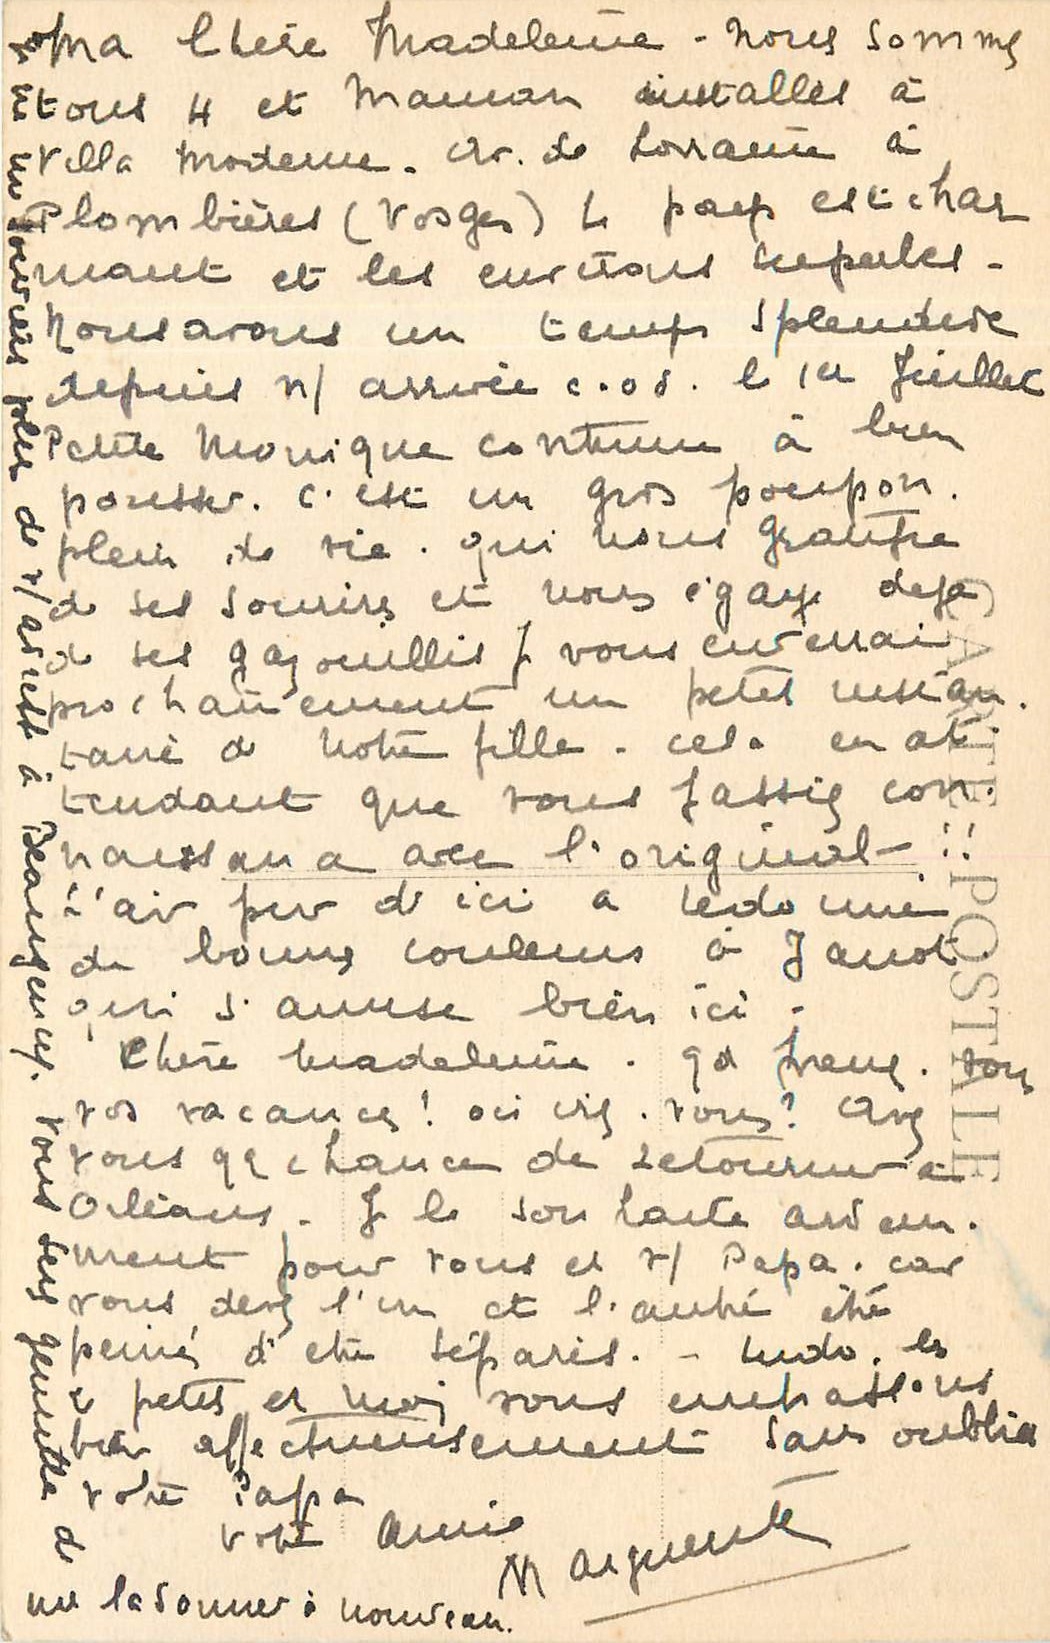 Ma Chère Madeleine - Nous sommes
tous 4 et Maman installés à
Villa Moderne. Av. de Lorraine à
Plombières (Vosges) Le pays est char
mant et les environs superbes -
Nous avons un temps splendide
depuis n/ arrivée c. à d. le 1er Juillet
Petite Monique continue à bien
pousser. C'est un gros poupon.
plein de vie. qui nous gratifie
de ses sourires et nous égaye déjà
de ses gazouillis Je vous enverrai
prochainement un petit instan.
tané de notre fille. cela en at.
tendant que vous fassiez con.
naissance avec l'original -
L'air pur d'ici a redonné
de bonnes couleurs à Janot
qui s'amuse bien ici.
Chère Madeleine. qd prenez. vous
vos vacances! où irez. vous? Avez
vous qq chance de retourner à
Orléans. Je le souhaite ardem.
ment pour vous et v/ Papa. car
vous devez l'un et l'autre être
peinés d'être séparés. - Ludo. les
2 petits et moi vous embrassons
bien affectueusement sans oublier
votre Papa
votre Amie
Marguerite
Je ne me souviens plus de v/ adresse à Beaugency. vous serez gentille de
me la donner à nouveau.
CARTE POSTALE